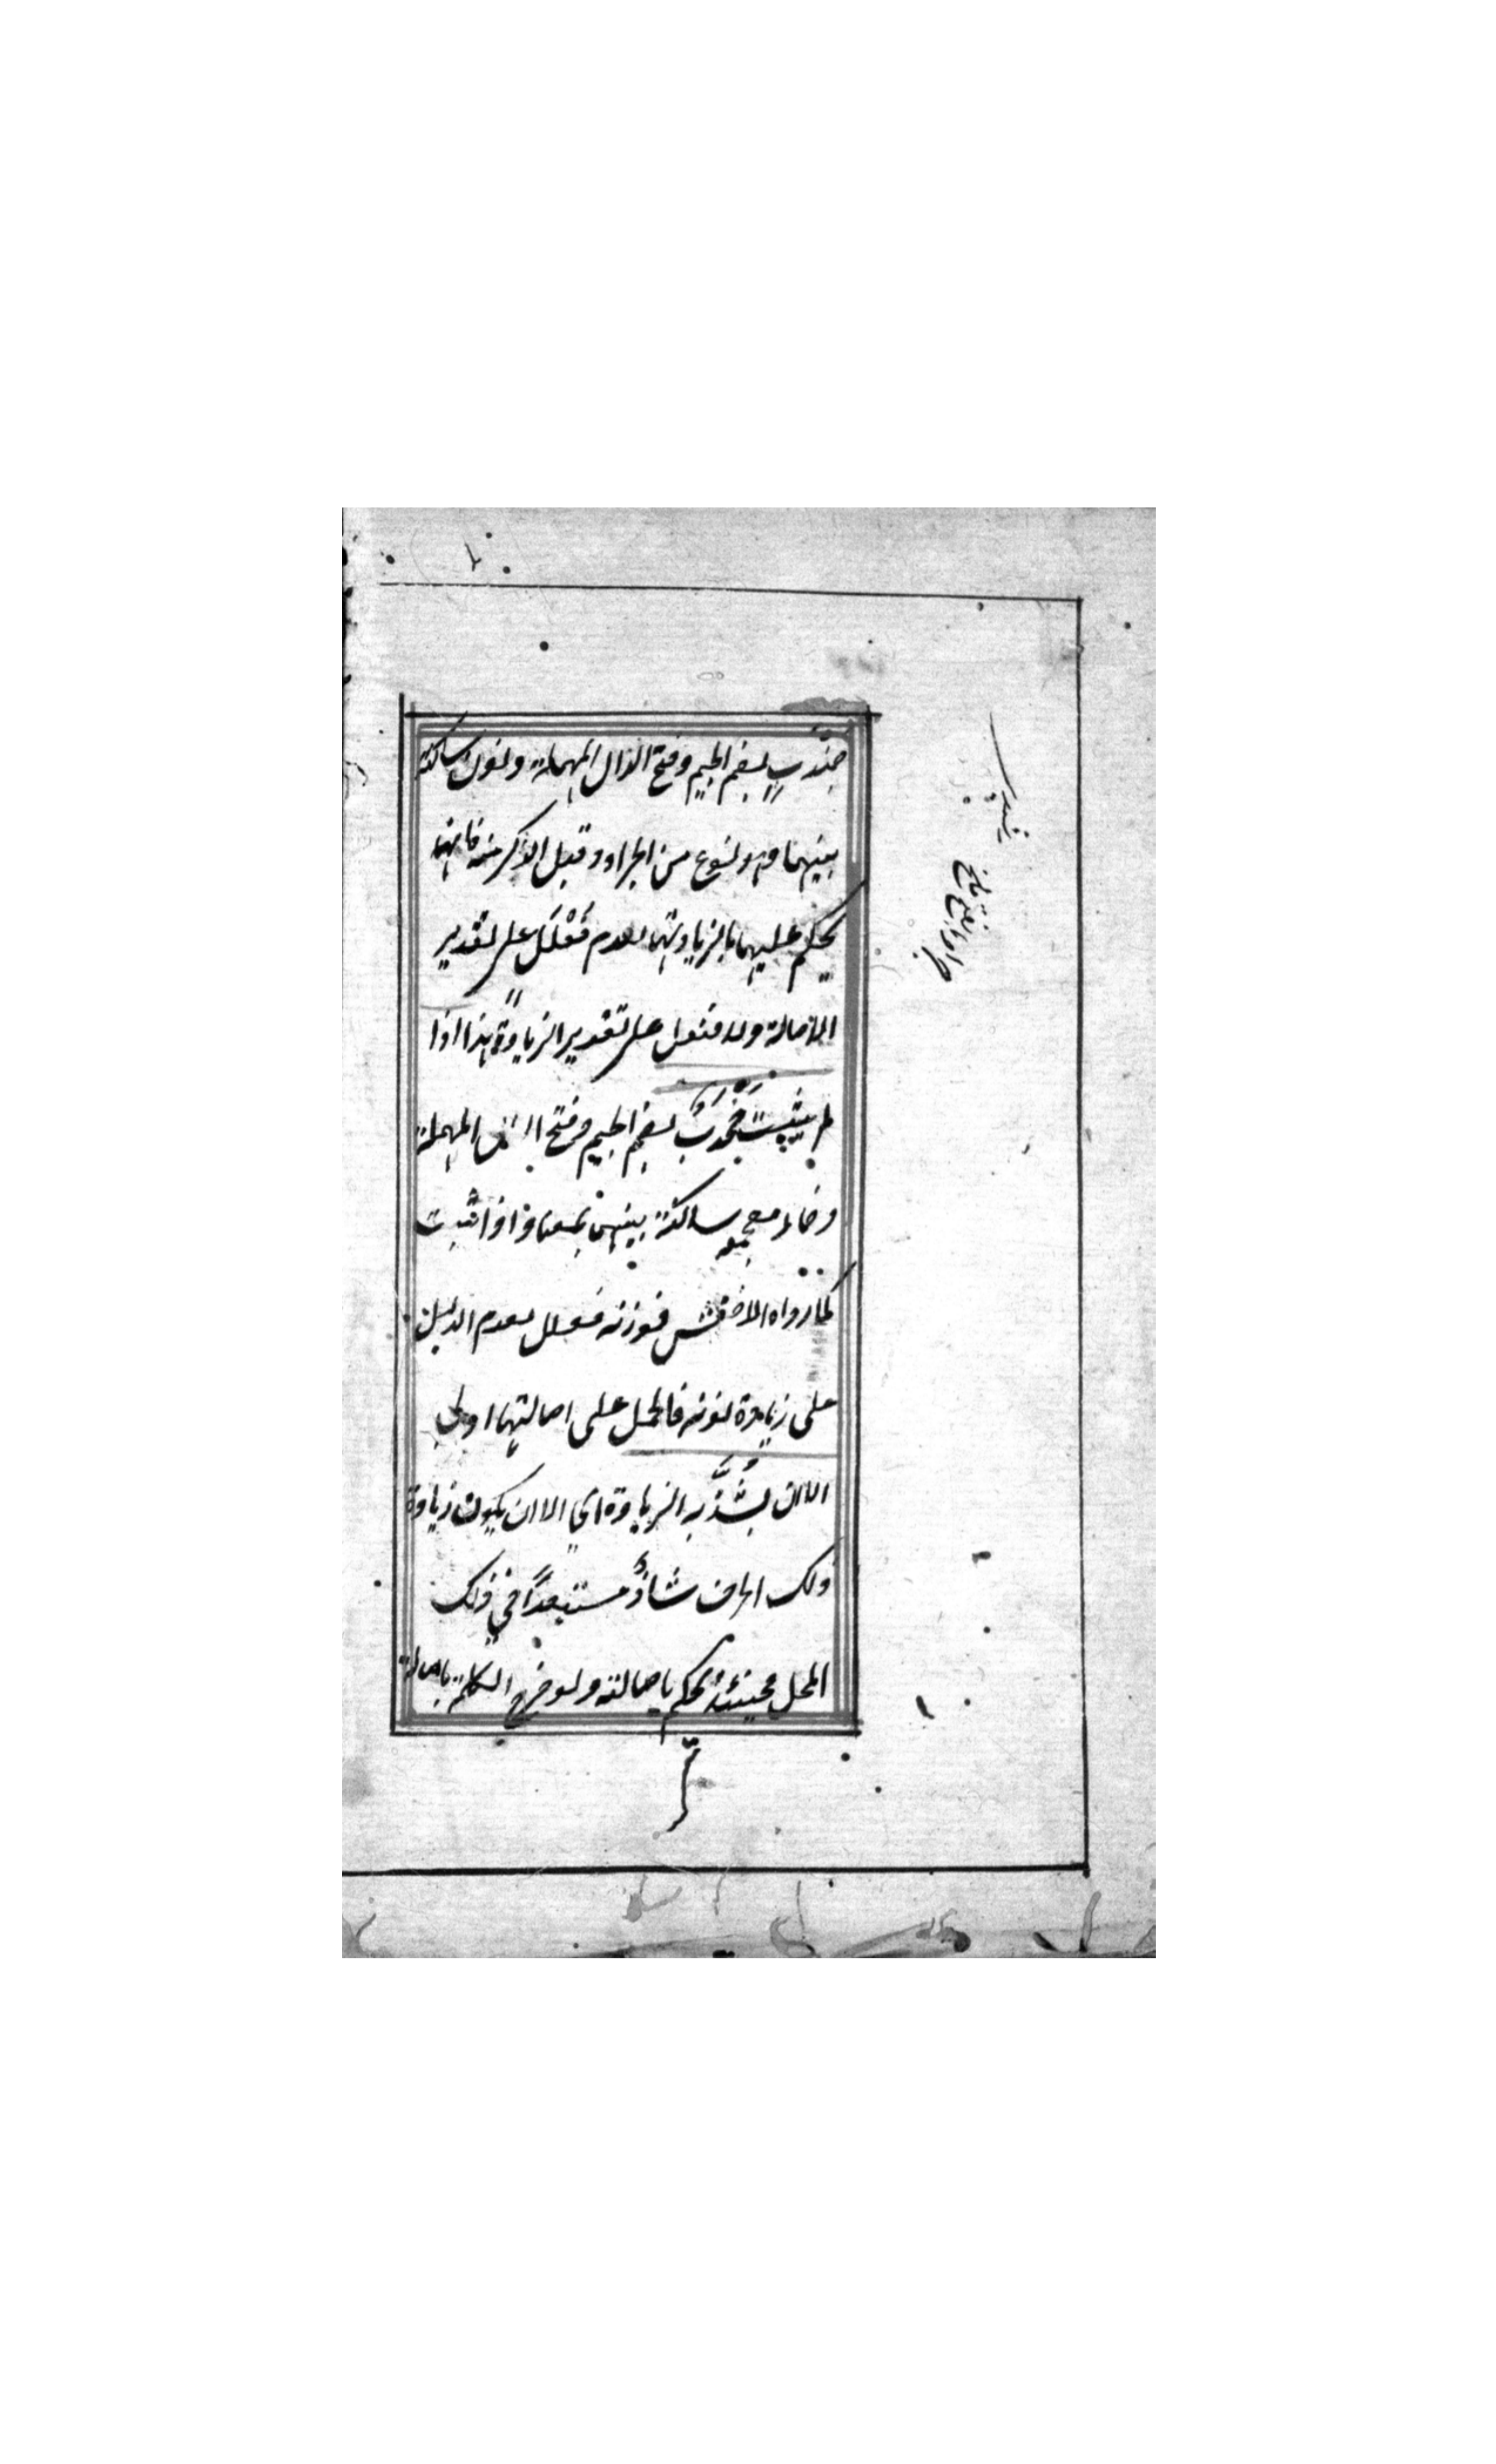 جندب بضم الجيم وفتح الدال المهملة ونون ساكنة
بينهما وهو نوع من الجراد وقيل الذكر منه فانهما
يحكم عليهما بالزيادتهما لعدم فعلل على تقدير
الاصالة وله فنعل على تقدير الزيادة هذا اذا
لم يثبت جخدب بضم الجيم وفتح الدال المهملة
وخاء معجمة ساكنة بينهما بمعناه واذا ثبت
كما رواه الاخفش فوزنه فعلل لعدم الدليل
على زيادة نونه فالحمل على اصالتها اولى
الا ان يشذ به الزيادة اي الا ان يكون زيادة
ذلك الحرف شاذ مستبعدا في ذلك
المحل فحينئذ يحكم باصالته ولو خرج الكلمة باصالة